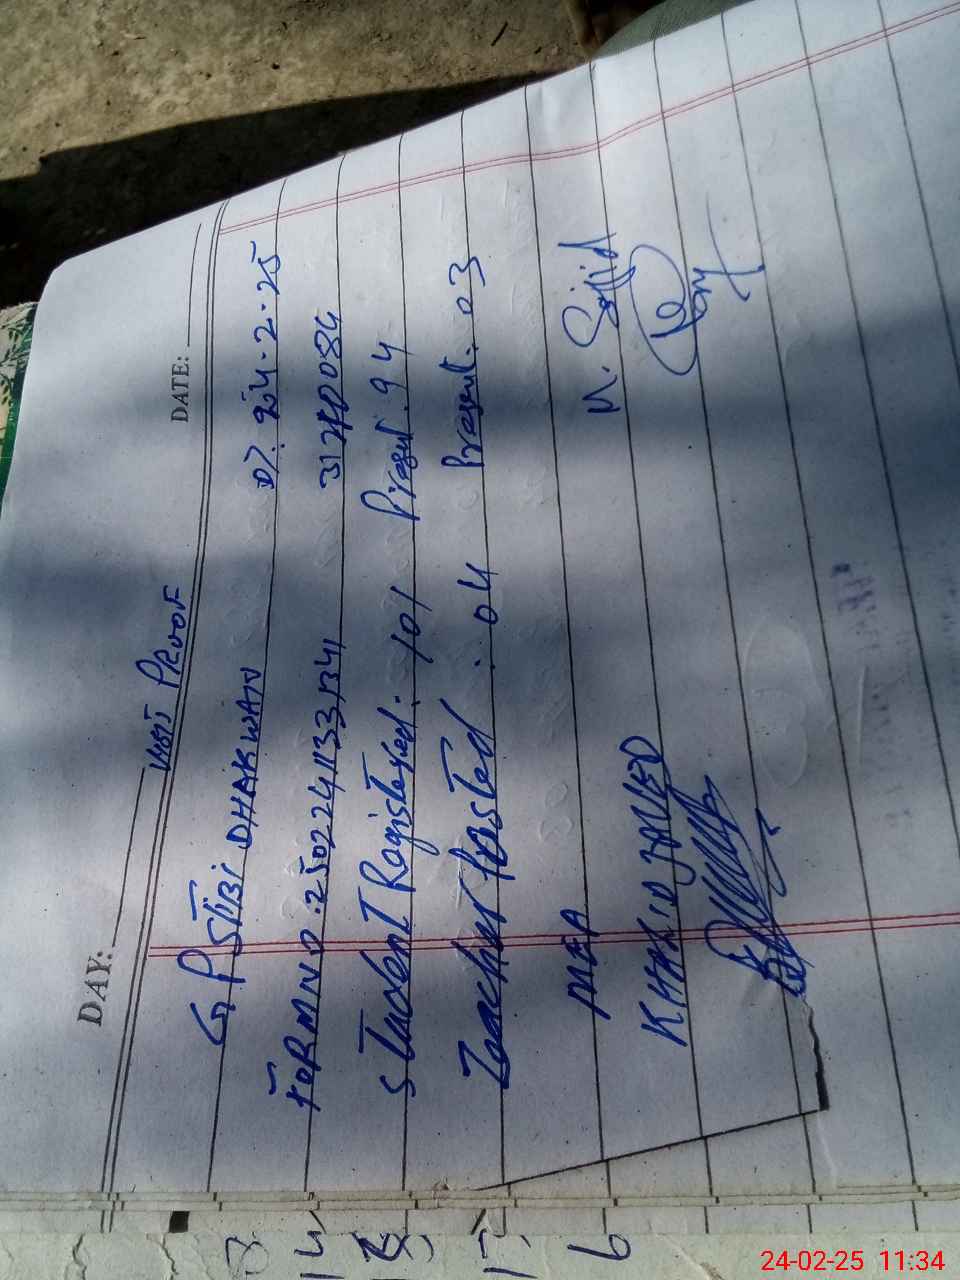 DAY:
DATE:
VISIT PROOF
GPS TIBI DHAKWAN DT. 24.2.25
FORM NO:250224113341 31270084
Student Registered: 101 Present. 94
Teacher Posted : 04 Present. 03
MEA M. Sajjid
KHALID JAVED
3
14
17
6
24-02-25 11:34